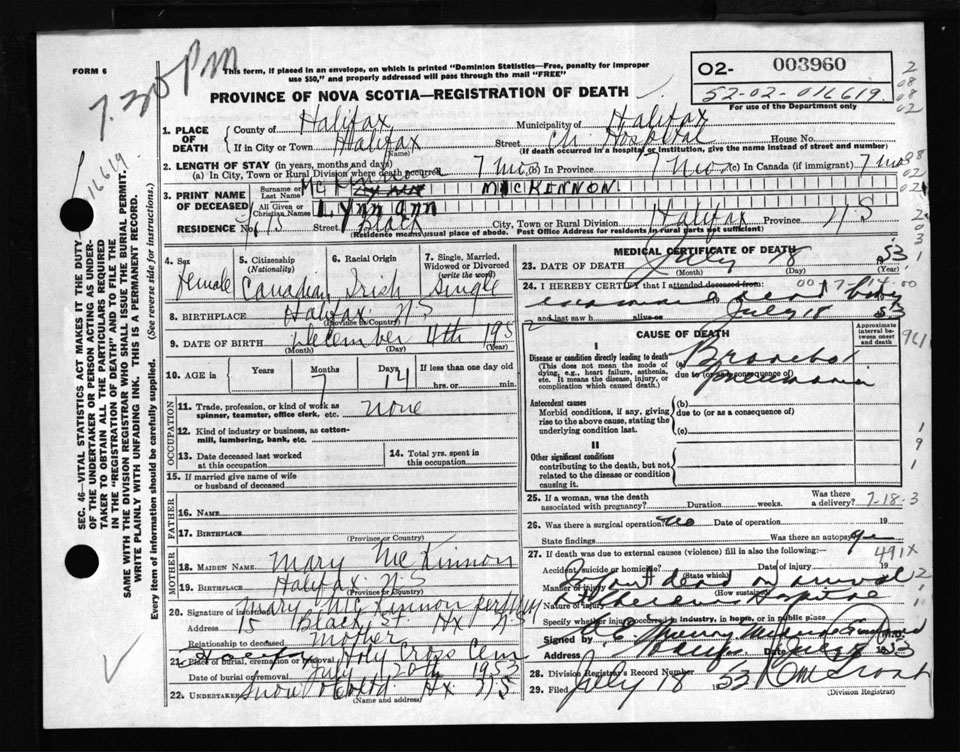 7.30 PM
FORM 6
This form, if placed in an envelope, on which is printed "Dominion Statistics—Free, penalty for improper use $50," and properly addressed will pass through the mail "FREE"
O2- 003960
52-02-016619.
For use of the Department only
PROVINCE OF NOVA SCOTIA—REGISTRATION OF DEATH
1. PLACE OF DEATH
County of Halifax Municipality of Halifax
If in City or Town Halifax Street Ch Hospital House No.
(Name) (If death occurred in a hospital or institution, give the name instead of street and number)
2. LENGTH OF STAY (in years, months and days)
(a) In City, Town or Rural Division where death occurred 7 mos (b) In Province 7 mos (c) In Canada (if immigrant) 7 mos
3. PRINT NAME OF DECEASED
Surname or Last Name MACKENNON
All Given or Christian Names Lynn Ann
RESIDENCE No. 15 Street Black City, Town or Rural Division Halifax Province N S
(Residence means usual place of abode. Post Office Address for residents in rural parts not sufficient)
4. Sex Female
5. Citizenship (Nationality) Canadian
6. Racial Origin Irish
7. Single, Married, Widowed or Divorced (write the word) Single
8. BIRTHPLACE Halifax N S
(Province or Country)
9. DATE OF BIRTH December 4th 195
(Month) (Day) (Year)
10. AGE in Years Months 7 Days 14 If less than one day old hrs. or min.
OCCUPATION
11. Trade, profession, or kind of work as spinner, teamster, office clerk, etc. none
12. Kind of industry or business, as cotton-mill, lumbering, bank, etc.
13. Date deceased last worked at this occupation
14. Total yrs. spent in this occupation
15. If married give name of wife or husband of deceased
FATHER
16. NAME
17. BIRTHPLACE
(Province or Country)
MOTHER
18. MAIDEN NAME Mary McKinnon
19. BIRTHPLACE Halifax N S
(Province or Country)
20. Signature of informant Mary McKinnon
Address 15 Black St. Hx N S
Relationship to deceased Mother
21. Place of burial, cremation or removal Holy Cross Cem
Date of burial or removal July 20th 1953
22. UNDERTAKER Snow & Co Ltd. Hx N S
(Name and address)
MEDICAL CERTIFICATE OF DEATH
23. DATE OF DEATH July 18 53
(Month) (Day) (Year)
24. I HEREBY CERTIFY that I attended deceased from:
and last saw h alive on July 18 53
CAUSE OF DEATH
Approximate interval between onset and death
I
Disease or condition directly leading to death (This does not mean the mode of dying, e.g., heart failure, asthenia, etc. It means the disease, injury, or complication which caused death.)
(a) Bronchial pneumonia
due to (or as consequence of)
Antecedent causes
Morbid conditions, if any, giving rise to the above cause, stating the underlying condition last.
(b)
due to (or as a consequence of)
(c)
II
Other significant conditions
contributing to the death, but not related to the disease or condition causing it.
25. If a woman, was the death associated with pregnancy? Duration weeks. Was there a delivery?
7-18-3
26. Was there a surgical operation no Date of operation 19
State findings Was there an autopsy
27. If death was due to external causes (violence) fill in also the following:—
491X
Accident, suicide or homicide? Date of injury 19
(State which)
Manner of injury Infant dead on arrival
(How sustained)
Nature of injury at Childrens Hospital
Specify whether injury occurred in industry, in home, or in public place
Signed by M.D.
Address Halifax Date July 18 1953
28. Division Registrar's Record Number
29. Filed July 18 1953
(Division Registrar)
SEC. 46—VITAL STATISTICS ACT MAKES IT THE DUTY OF THE UNDERTAKER OR PERSON ACTING AS UNDERTAKER TO OBTAIN ALL THE PARTICULARS REQUIRED IN THE "REGISTRATION OF DEATH" AND TO FILE THE SAME WITH THE DIVISION REGISTRAR WHO SHALL ISSUE THE BURIAL PERMIT.
WRITE PLAINLY WITH UNFADING INK. THIS IS A PERMANENT RECORD.
Every item of information should be carefully supplied. (See reverse side for instructions.)
16619